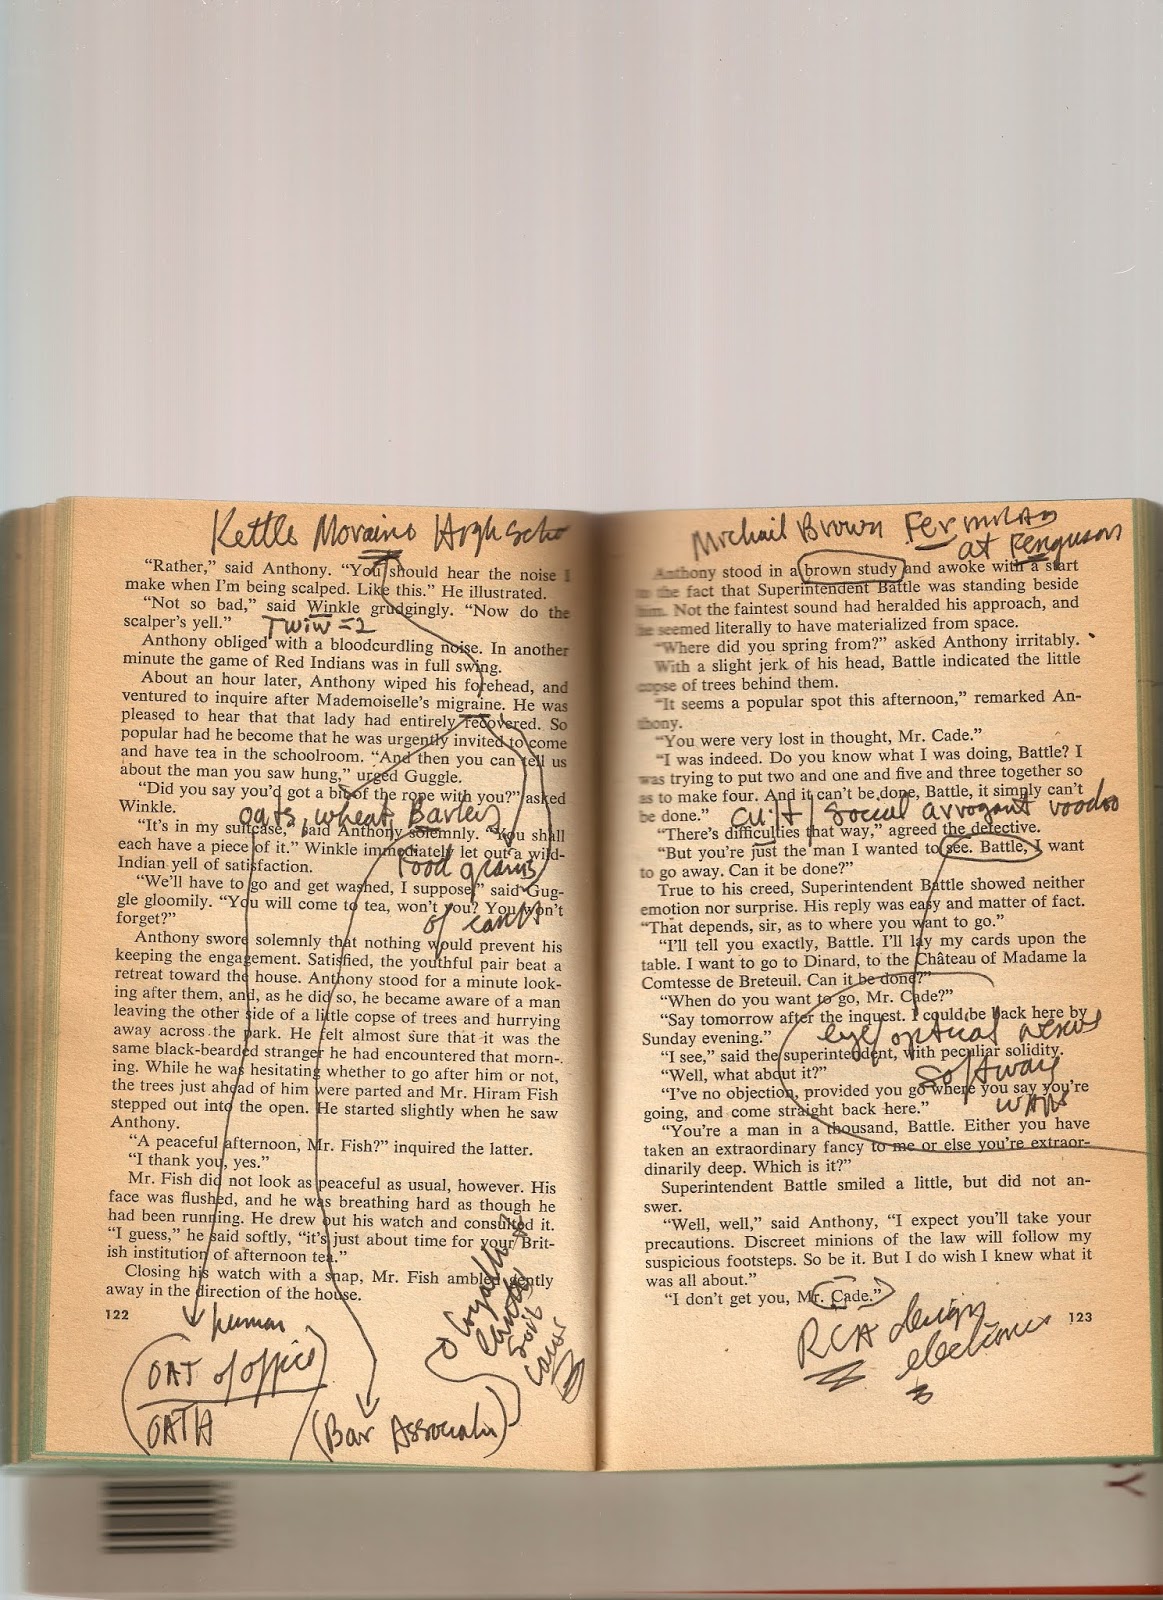 Kettle Moraine High Scho
"Rather," said Anthony. "You should hear the noise I
make when I'm being scalped. Like this." He illustrated.
"Not so bad," said Winkle grudgingly. "Now do the
scalper's yell."
Twiw = 2
Anthony obliged with a bloodcurdling noise. In another
minute the game of Red Indians was in full swing.
About an hour later, Anthony wiped his forehead, and
ventured to inquire after Mademoiselle's migraine. He was
pleased to hear that that lady had entirely recovered. So
popular had he become that he was urgently invited to come
and have tea in the schoolroom. "And then you can tell us
about the man you saw hung," urged Guggle.
"Did you say you'd got a bit of the rope with you?" asked
Winkle.
oats, wheat, Barley
"It's in my suitcase," said Anthony solemnly. "You shall
each have a piece of it." Winkle immediately let out a wild-
Indian yell of satisfaction.
Food grains
"We'll have to go and get washed, I suppose," said Gug-
gle gloomily. "You will come to tea, won't you? You won't
forget?"
of earth
Anthony swore solemnly that nothing would prevent his
keeping the engagement. Satisfied, the youthful pair beat a
retreat toward the house. Anthony stood for a minute look-
ing after them, and, as he did so, he became aware of a man
leaving the other side of a little copse of trees and hurrying
away across the park. He felt almost sure that it was the
same black-bearded stranger he had encountered that morn-
ing. While he was hesitating whether to go after him or not,
the trees just ahead of him were parted and Mr. Hiram Fish
stepped out into the open. He started slightly when he saw
Anthony.
"A peaceful afternoon, Mr. Fish?" inquired the latter.
"I thank you, yes."
Mr. Fish did not look as peaceful as usual, however. His
face was flushed, and he was breathing hard as though he
had been running. He drew out his watch and consulted it.
"I guess," he said softly, "it's just about time for your Brit-
ish institution of afternoon tea."
Closing his watch with a snap, Mr. Fish ambled gently
away in the direction of the house.
122
human
OAT of office
OATH
(Bar Associatn)
soil
Michail Brown Fermilab
at Ferguson
Anthony stood in a brown study and awoke with a start
to the fact that Superintendent Battle was standing beside
him. Not the faintest sound had heralded his approach, and
he seemed literally to have materialized from space.
"Where did you spring from?" asked Anthony irritably.
With a slight jerk of his head, Battle indicated the little
copse of trees behind them.
"It seems a popular spot this afternoon," remarked An-
thony.
"You were very lost in thought, Mr. Cade."
"I was indeed. Do you know what I was doing, Battle? I
was trying to put two and one and five and three together so
as to make four. And it can't be done, Battle, it simply can't
be done."
cult / social arrogant voodoo
"There's difficulties that way," agreed the detective.
"But you're just the man I wanted to see. Battle, I want
to go away. Can it be done?"
True to his creed, Superintendent Battle showed neither
emotion nor surprise. His reply was easy and matter of fact.
"That depends, sir, as to where you want to go."
"I'll tell you exactly, Battle. I'll lay my cards upon the
table. I want to go to Dinard, to the Château of Madame la
Comtesse de Breteuil. Can it be done?"
"When do you want to go, Mr. Cade?"
"Say tomorrow after the inquest. I could be back here by
Sunday evening."
eye / optical nerve
"I see," said the superintendent, with peculiar solidity.
"Well, what about it?"
software
"I've no objection, provided you go where you say you're
going, and come straight back here."
wars
"You're a man in a thousand, Battle. Either you have
taken an extraordinary fancy to me or else you're extraor-
dinarily deep. Which is it?"
Superintendent Battle smiled a little, but did not an-
swer.
"Well, well," said Anthony, "I expect you'll take your
precautions. Discreet minions of the law will follow my
suspicious footsteps. So be it. But I do wish I knew what it
was all about."
"I don't get you, Mr. Cade."
123
RCA design
electronics